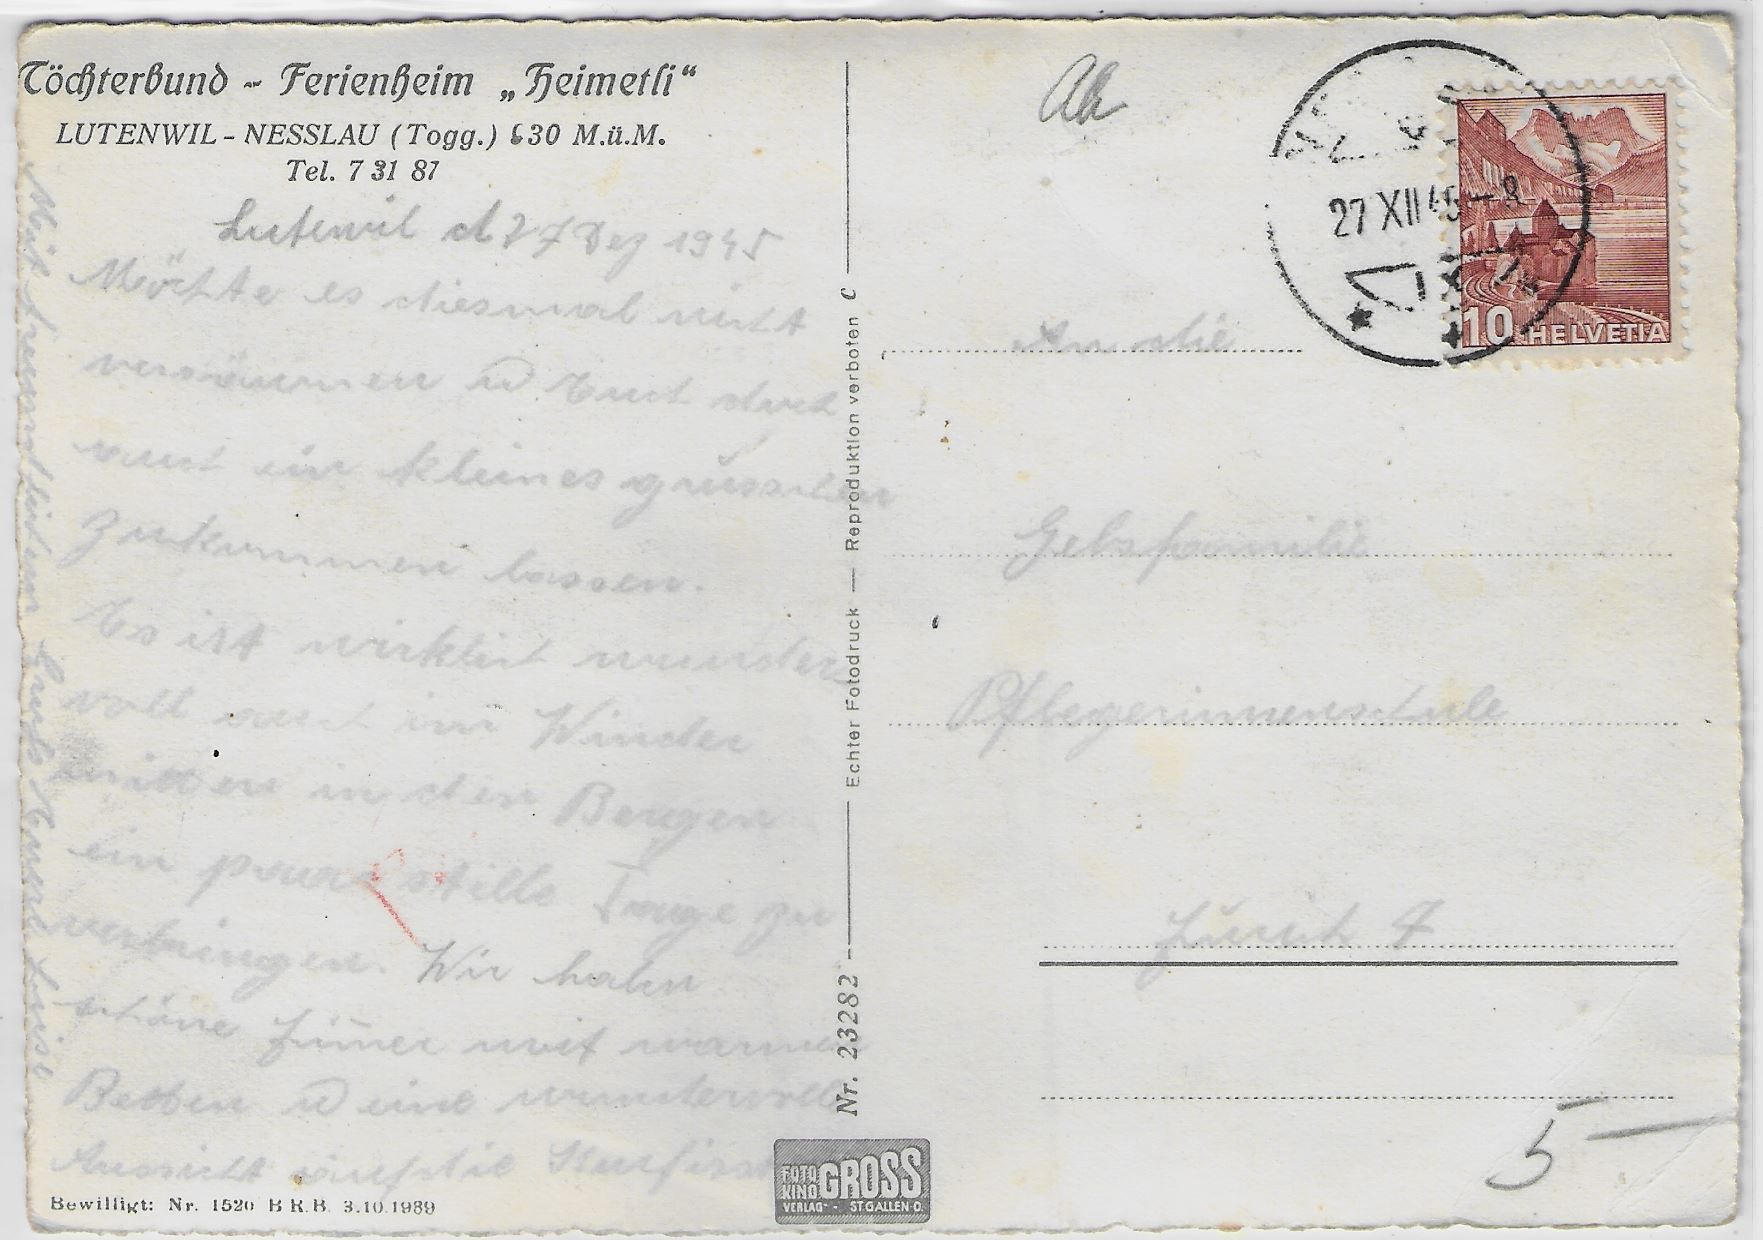 Töchterbund - Ferienheim „Heimetli"
LUTENWIL - NESSLAU (Togg.) 630 M.ü.M.
Tel. 7 31 87
Lutenwil d 27 Dez 1945
Möchte es diesmal nicht
versäumen u Euch doch
auch ein kleines grüsschen
zukommen lassen.
Es ist wirklich wunder
voll auch im Winder
mitten in den Bergen
ein paar stille Tage zu
verbringen. Wir haben
schöne Zimer mit warmen
Betten u eine wundervolle
Aussicht auf die Kurfirst
Mit freundlichem Gruss
Bewilligt: Nr. 1520 B.R.B. 3.10.1939
Nr. 23282 — Echter Fotodruck — Reproduktion verboten C
FOTO KINO GROSS
VERLAG - ST.GALLEN O.
Ak
27 XII 45 - 8
10 HELVETIA
An die
Gebsfamilie
Pflegerinnenschule
Zürich 7
5 —